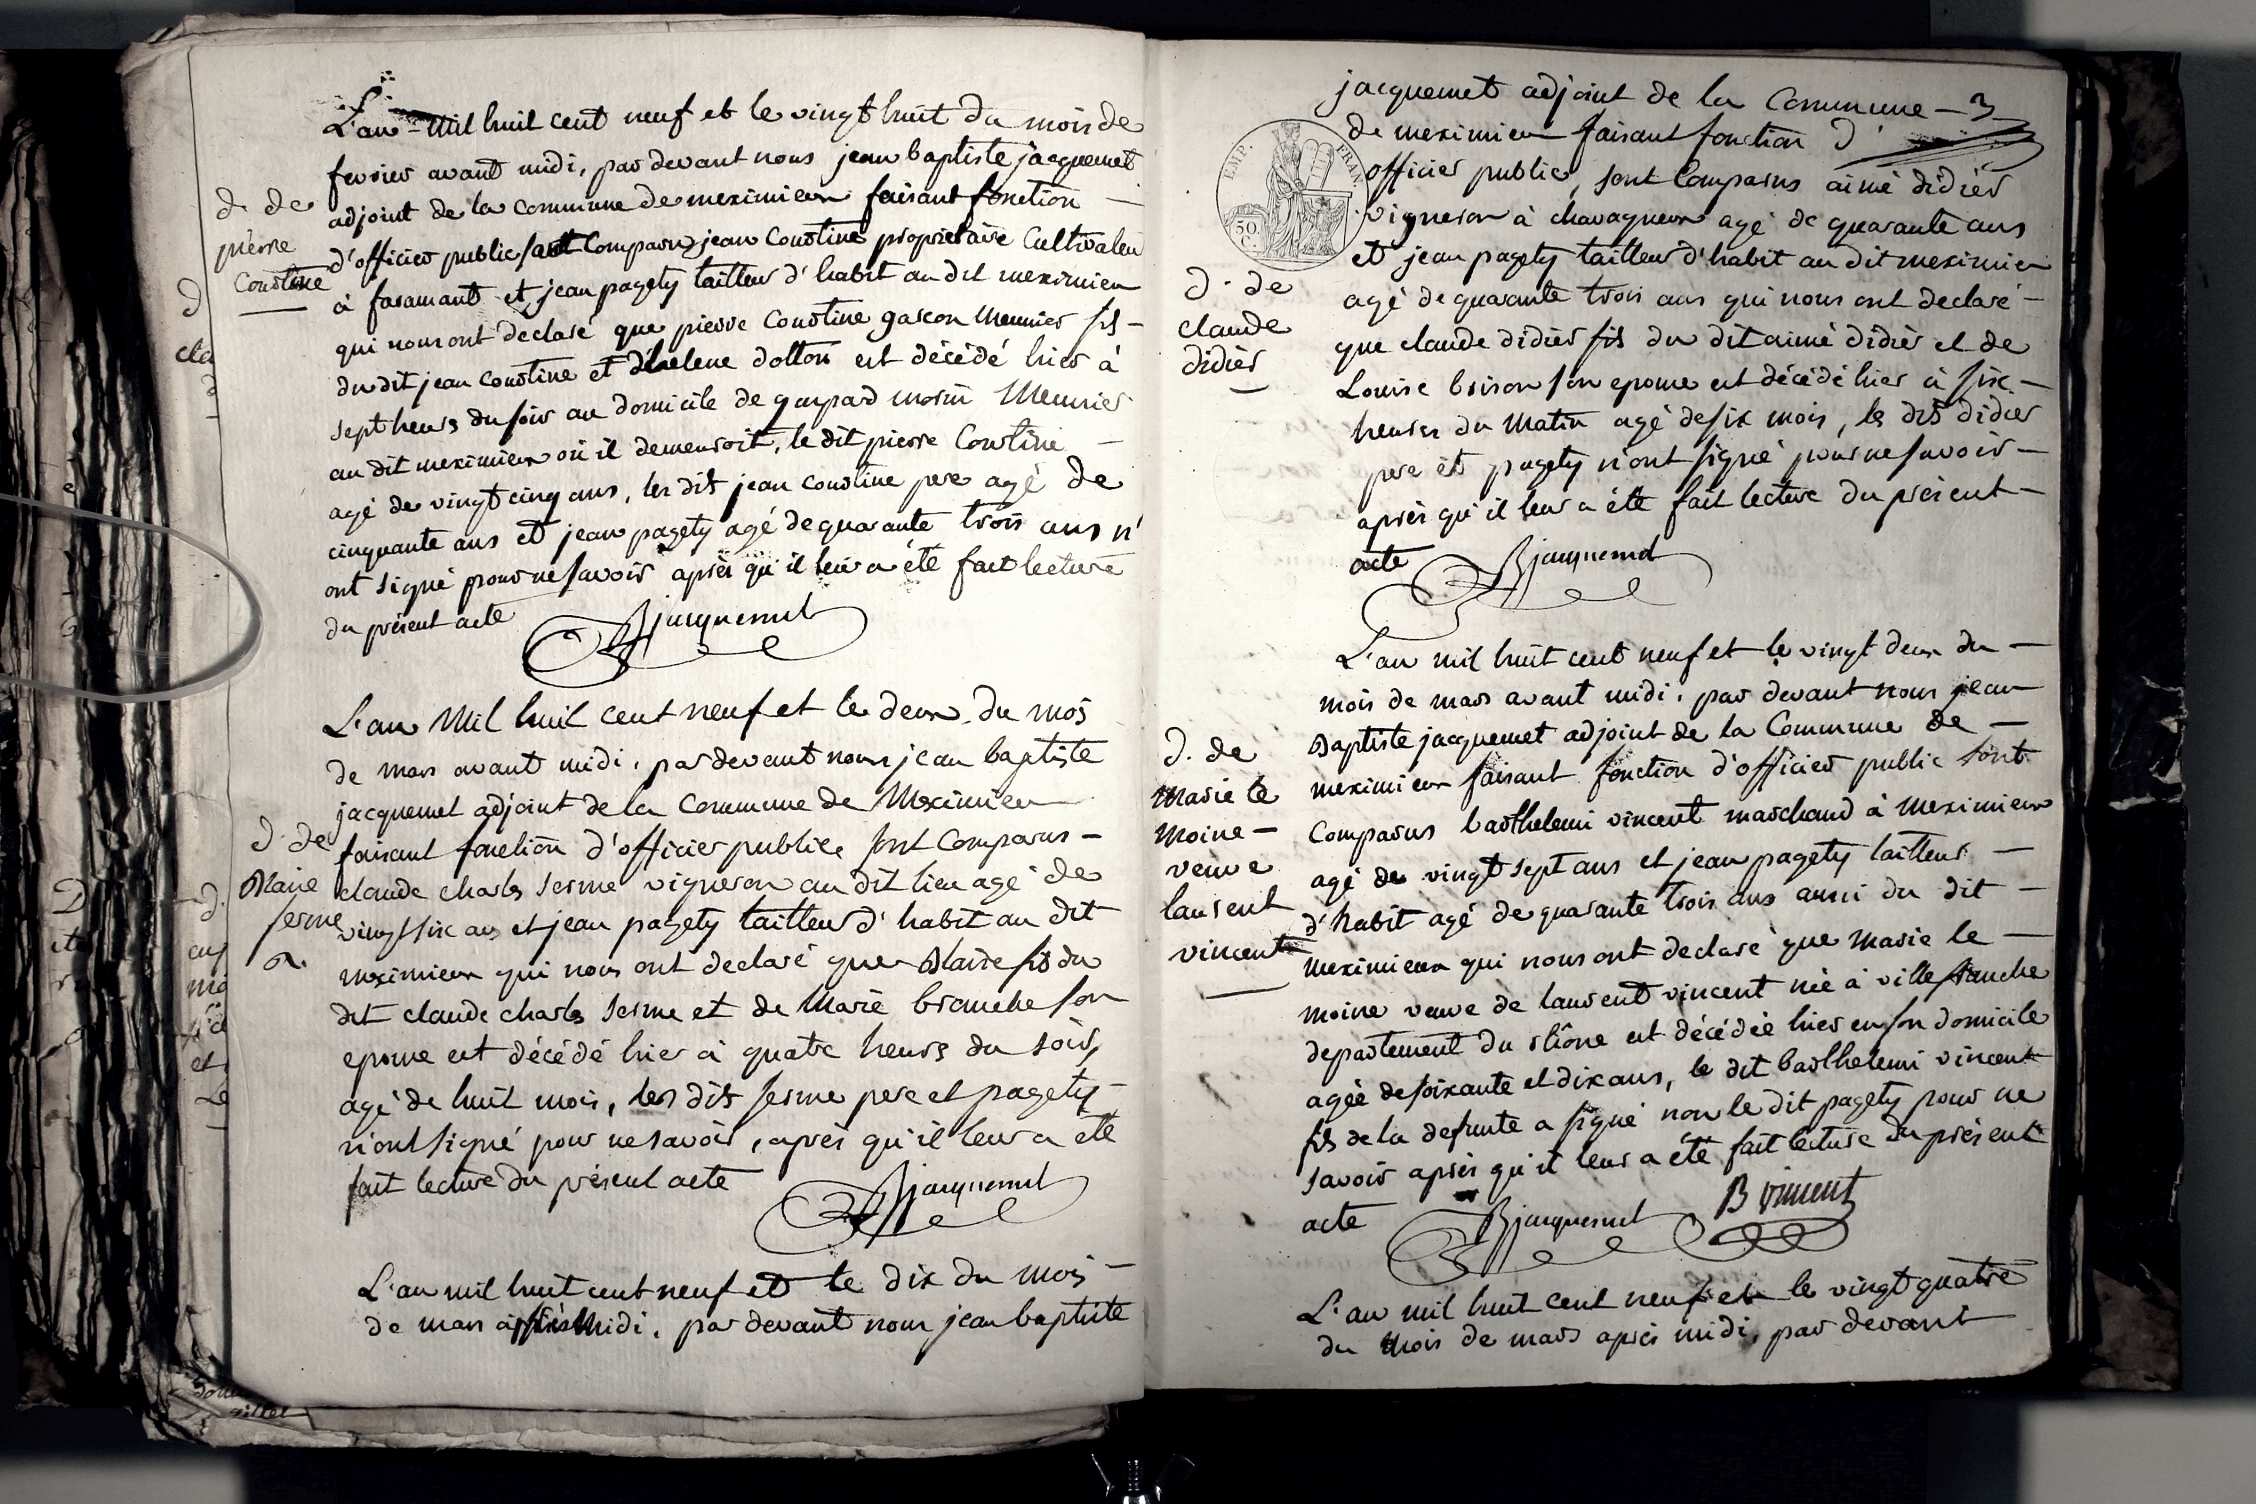 L'an mil huit cent neuf et le vingt huit du mois de
fevrier avant midi, par devant nous jean baptiste jacquemet
adjoint de la commune de meximieux faisant fonction
d'officier public sont comparus jean Coustine proprietaire Cultivateur
à faramant et jean pagety tailleur d'habit au dit meximieux
qui nous ont declaré que pierre Coustine garcon Meunier fils
du dit jean coustine et d'helene dotton est décédé hier à
sept heurs du soir au domicile de gaspard morin Meunier
au dit meximieux où il demeuroit, le dit pierre Coustine
agé de vingt cinq ans, les dits jean coustine pere agé de
cinquante ans et jean pagety agé de quarante trois ans n'
ont signé pour ne savoir après qu'il leur a été fait lecture
du présent acte
Bjacquemet
d. de
pierre
Coustine
L'an Mil huit cent neuf et le deux du mois
de mars avant midi, par devant nous jean baptiste
jacquemet adjoint de la Commune de Meximieux
faisant fonction d'officier public sont Comparus
claude charles serme vigneron au dit lieu agé de
vingt six ans et jean pagety tailleur d'habit au dit
meximieux qui nous ont declaré que Blaise fils du
dit claude charles serme et de Marie branche son
epouse est décédé hier à quatre heurs du soir,
agé de huit mois, les dits serme pere et pagety
n'ont signé pour ne savoir, après qu'il leur a été
fait lecture du présent acte
Bjacquemet
d. de
Blaise
serme
L'an mil huit cent neuf et le dix du mois
de mars après Midi, par devant nous jean baptiste
jacquemet adjoint de la Commune
de meximieux faisant fonction d'
officier public, sont Comparus aimé didier
vigneron à chavagneux agé de quarante ans
et jean pagety tailleur d'habit au dit meximieux
agé de quarante trois ans qui nous ont declaré
que claude didier fils du dit aimé didier et de
Louise brison son epouse est décédé hier à six
heures du Matin agé de six mois, les dits didier
pere et pagety n'ont signé pour ne savoir
après qu'il leur a été fait lecture du présent
acte
Bjacquemet
EMP. FRAN.
50 C.
d. de
claude
didier
L'an mil huit cent neuf et le vingt deux du
mois de mars avant midi, par devant nous jean
Baptiste jacquemet adjoint de la Commune de
meximieux faisant fonction d'officier public sont
Comparus barthelemi vincent marchand à Meximieux
agé de vingt sept ans et jean pagety tailleur
d'habit agé de quarante trois ans aussi du dit
meximieux qui nous ont declaré que Marie le
moine veuve de laurent vincent née à villefranche
departement du rhône est décédée hier en son domicile
agée de soixante et dix ans, le dit barthelemi vincent
fils de la defunte a signé non le dit pagety pour ne
savoir après qu'il leur a été fait lecture du présent
acte
Bjacquemet B vincent
d. de
Marie le
Moine
veuve
laurent
vincent
L'an mil huit cent neuf et le vingt quatre
du Mois de mars après midi, par devant